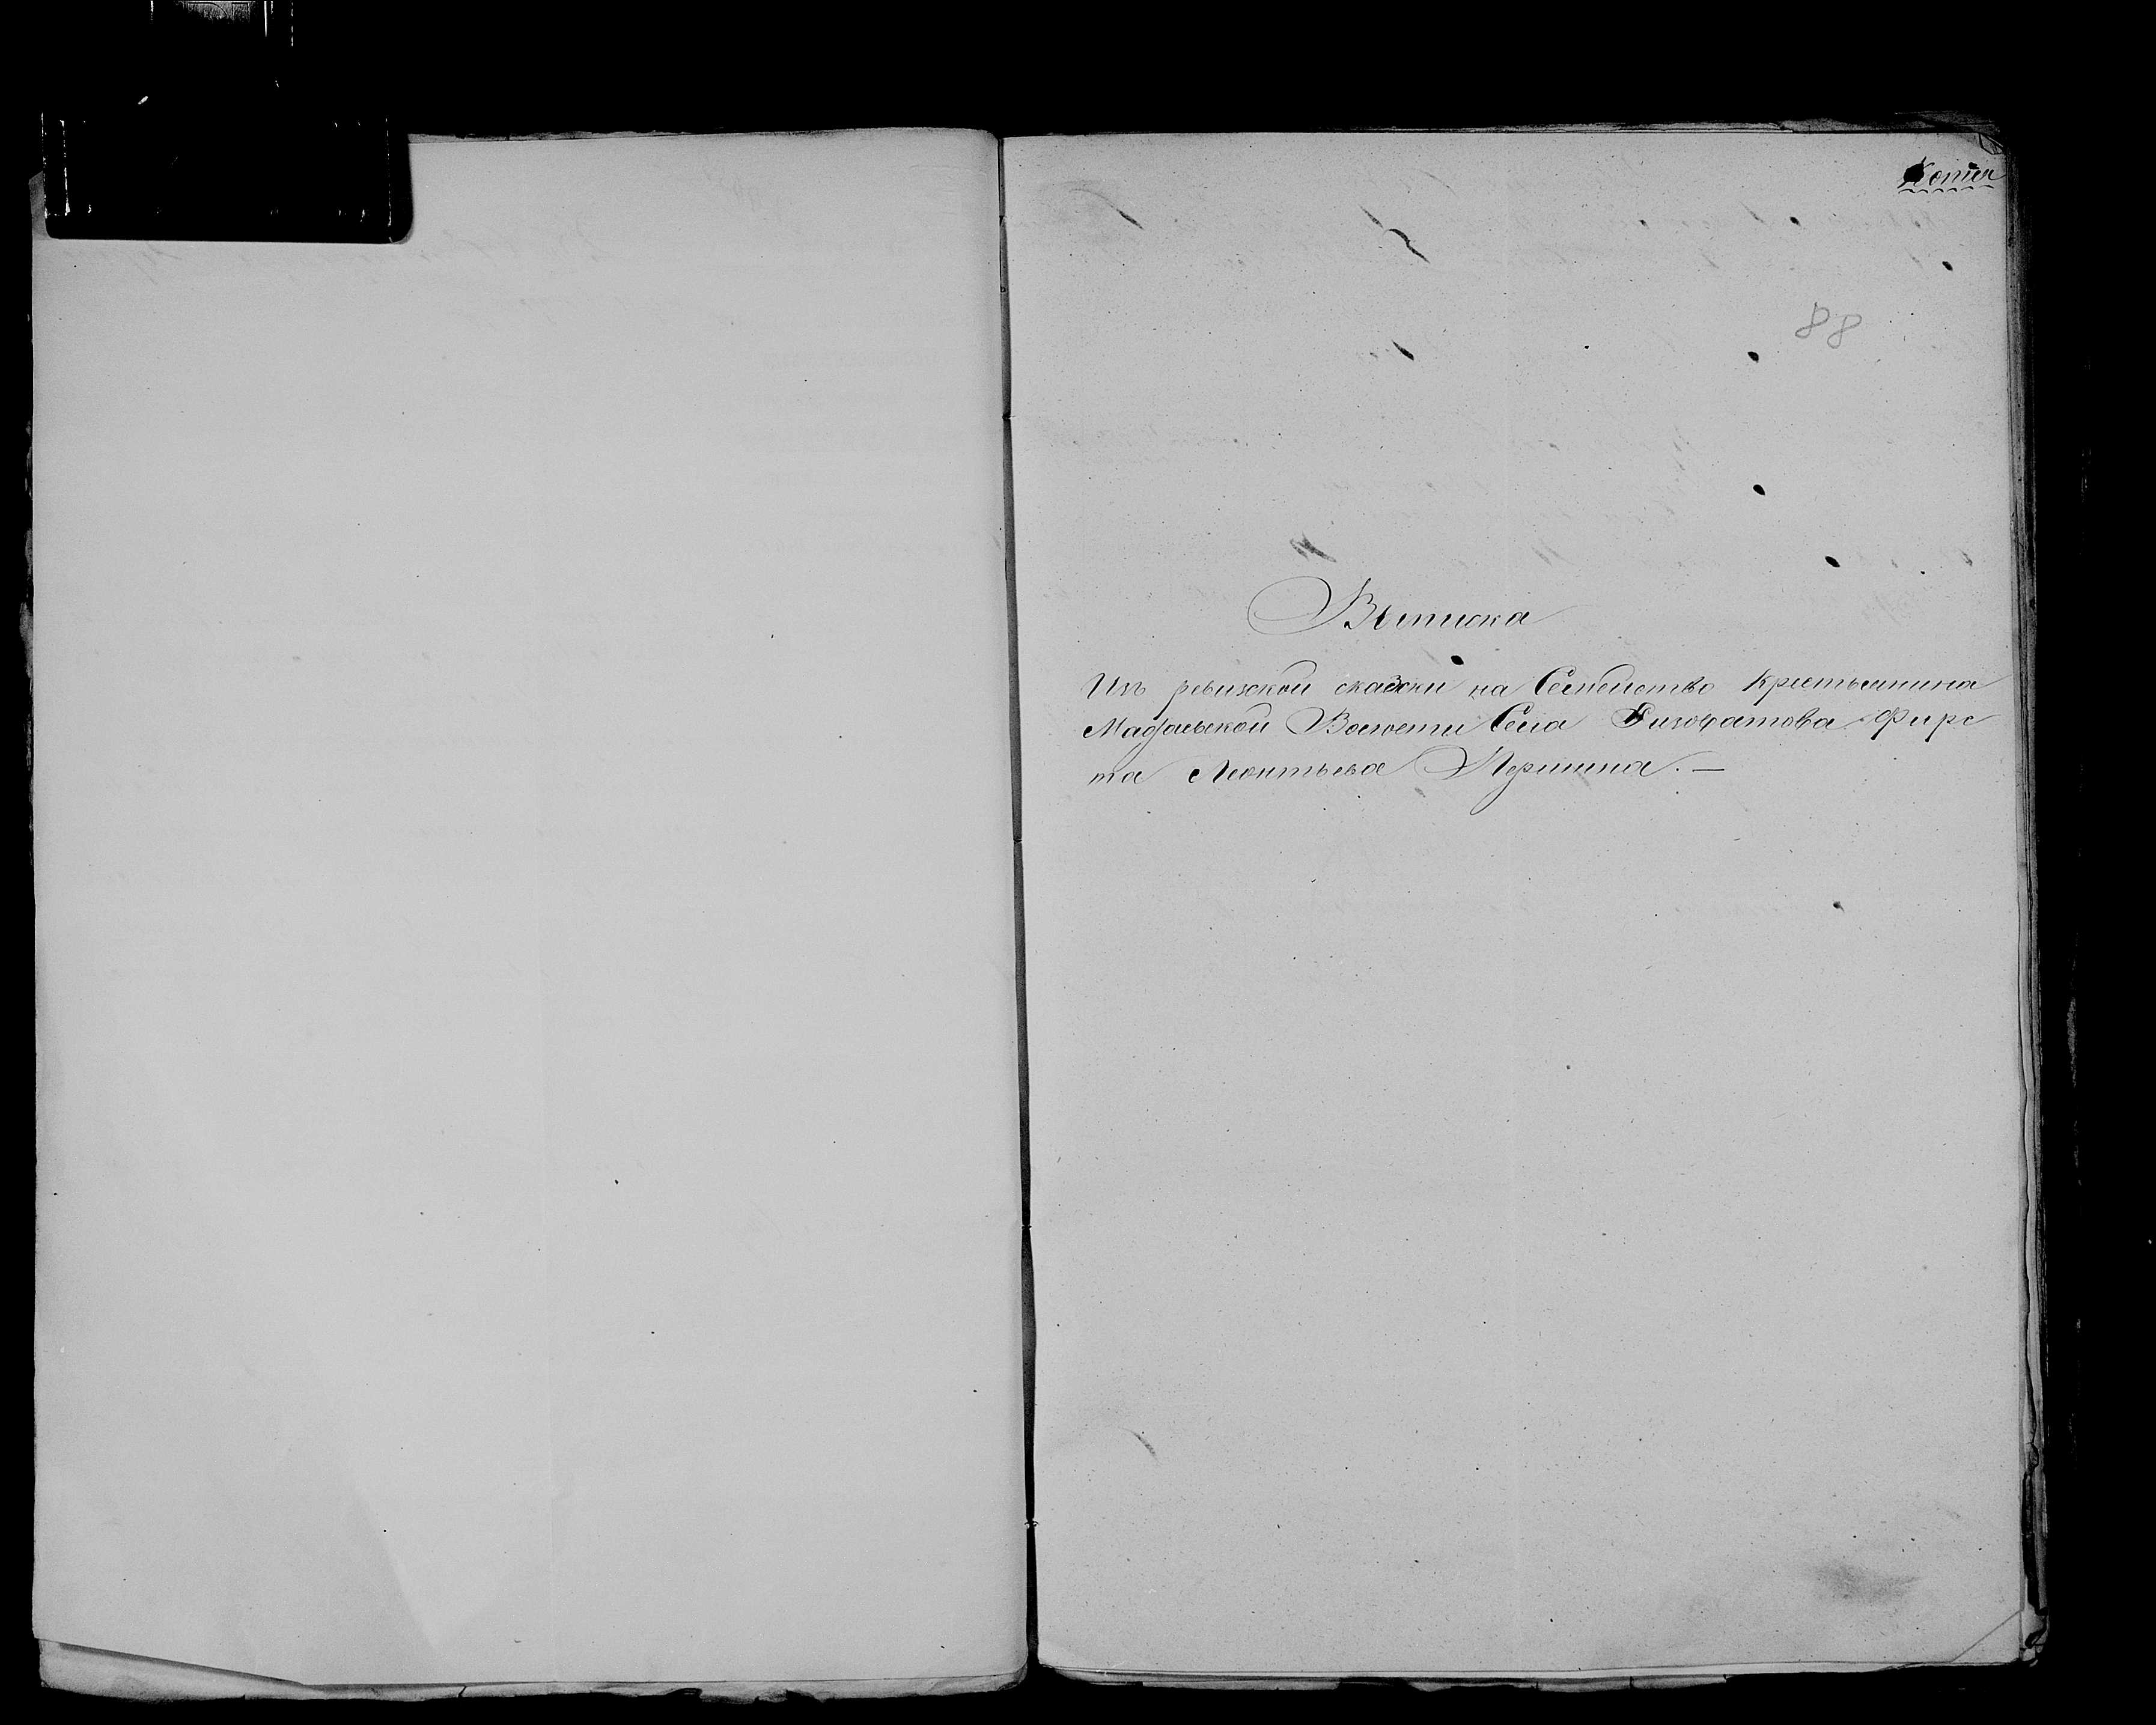 Копия
88
Выписка
Изъ ревизской сказки на Семейство Крестьянина
Волости Села Елизоватова Фирс
та Леонтьева Першина. —